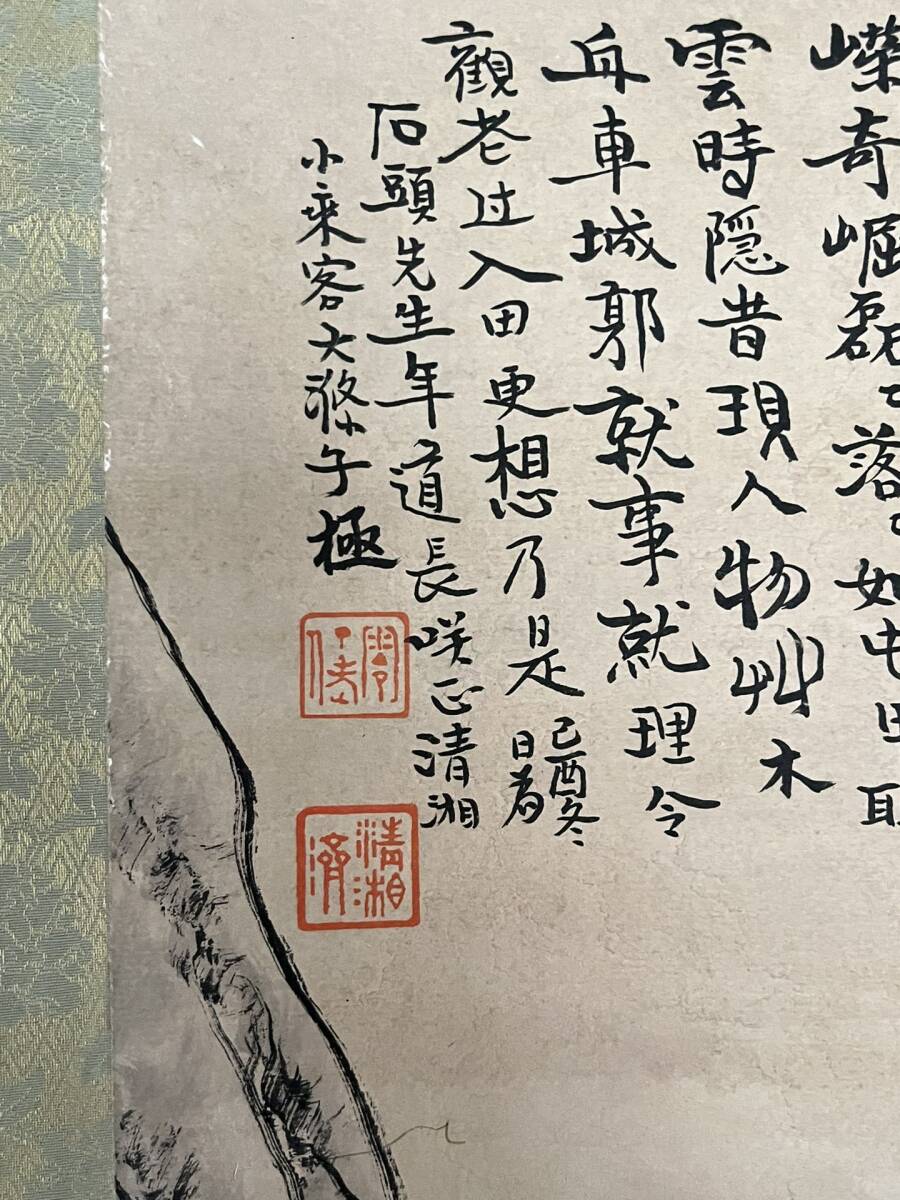 嶸奇崛磊々落々如屯田取
雲時隱昔現人物艸木
舟車城郭就事就理令
觀者过入田更想乃是
己酉冬
日為
石頭先生年道長咲正清湘
小乘客大滌子極
清湘